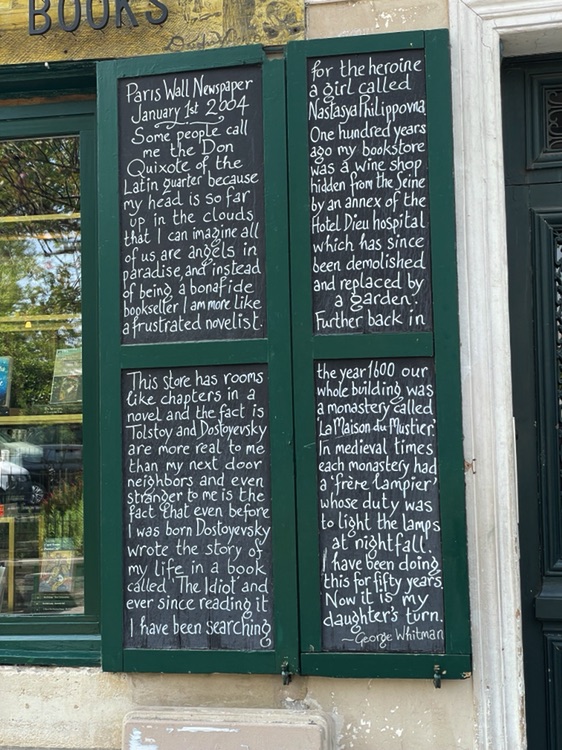 BOOKS
Paris Wall Newspaper
January 1st 2004
Some people call
me the Don
Quixote of the
Latin quarter because
my head is so far
up in the clouds
that I can imagine all
of us are angels in
paradise and instead
of being a bonafide
bookseller I am more like
a frustrated novelist.
This store has rooms
like chapters in a
novel and the fact is
Tolstoy and Dostoyevsky
are more real to me
than my next door
neighbors and even
stranger to me is the
fact that even before
I was born Dostoyevsky
wrote the story of
my life in a book
called 'The Idiot' and
ever since reading it
I have been searching
for the heroine
a girl called
Nastasya Philippovna
One hundred years
ago my bookstore
was a wine shop
hidden from the Seine
by an annex of the
Hotel Dieu hospital
which has since
been demolished
and replaced by
a garden.
Further back in
the year 1600 our
whole building was
a monastery called
'La Maison du Mustier'
In medieval times
each monastery had
a 'frère lampier'
whose duty was
to light the lamps
at nightfall.
I have been doing
this for fifty years
Now it is my
daughter's turn.
~George Whitman